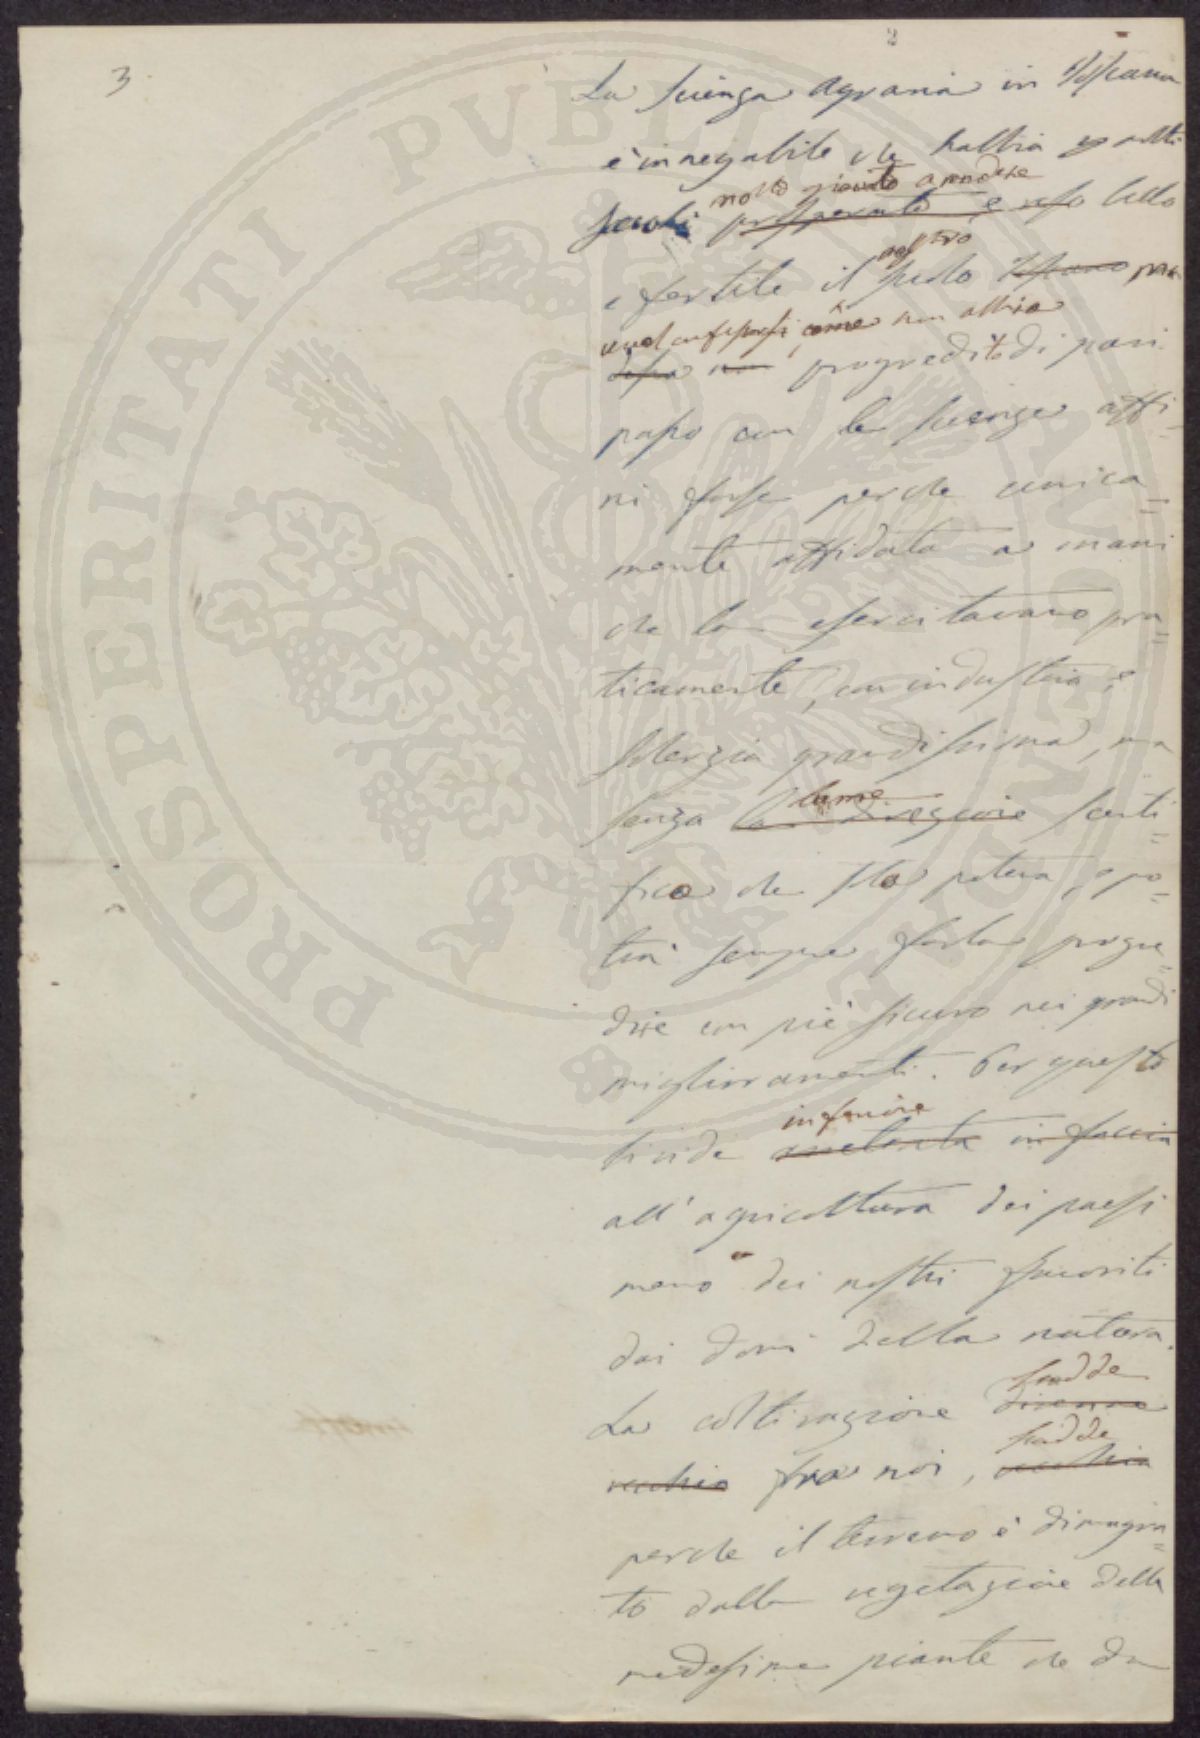 3
2
La scienza Agraria in Toscana
è innegabile che habbia molti
molto giovato a rendere
secoli prosperato e reso bello
nostro
e fertile il suolo Toscano ma
come non abbia
progredito di pari
passo con le scienze affi-
ni forse perche unica=
mente affidata a mani
che la esercitavano pra=
ticamente, con industria, e
solerzia grandissima, ma
lume
senza la direzione scenti=
fica che sola poteva, e po=
trà sempre farla progre=
dire con piè sicuro nei grandi
miglioramenti. Per questo
inferiore
si vide in faccia
all'agricoltura dei paesi
meno dei nostri favoriti
dai doni della natura.
La coltivazione divenne
vecchia fra noi, vecchia
perche il terreno è dimagra=
to dalla vegetazione delle
medesime piante che da
PROSPERITATI PUBLICAE AUGENDAE